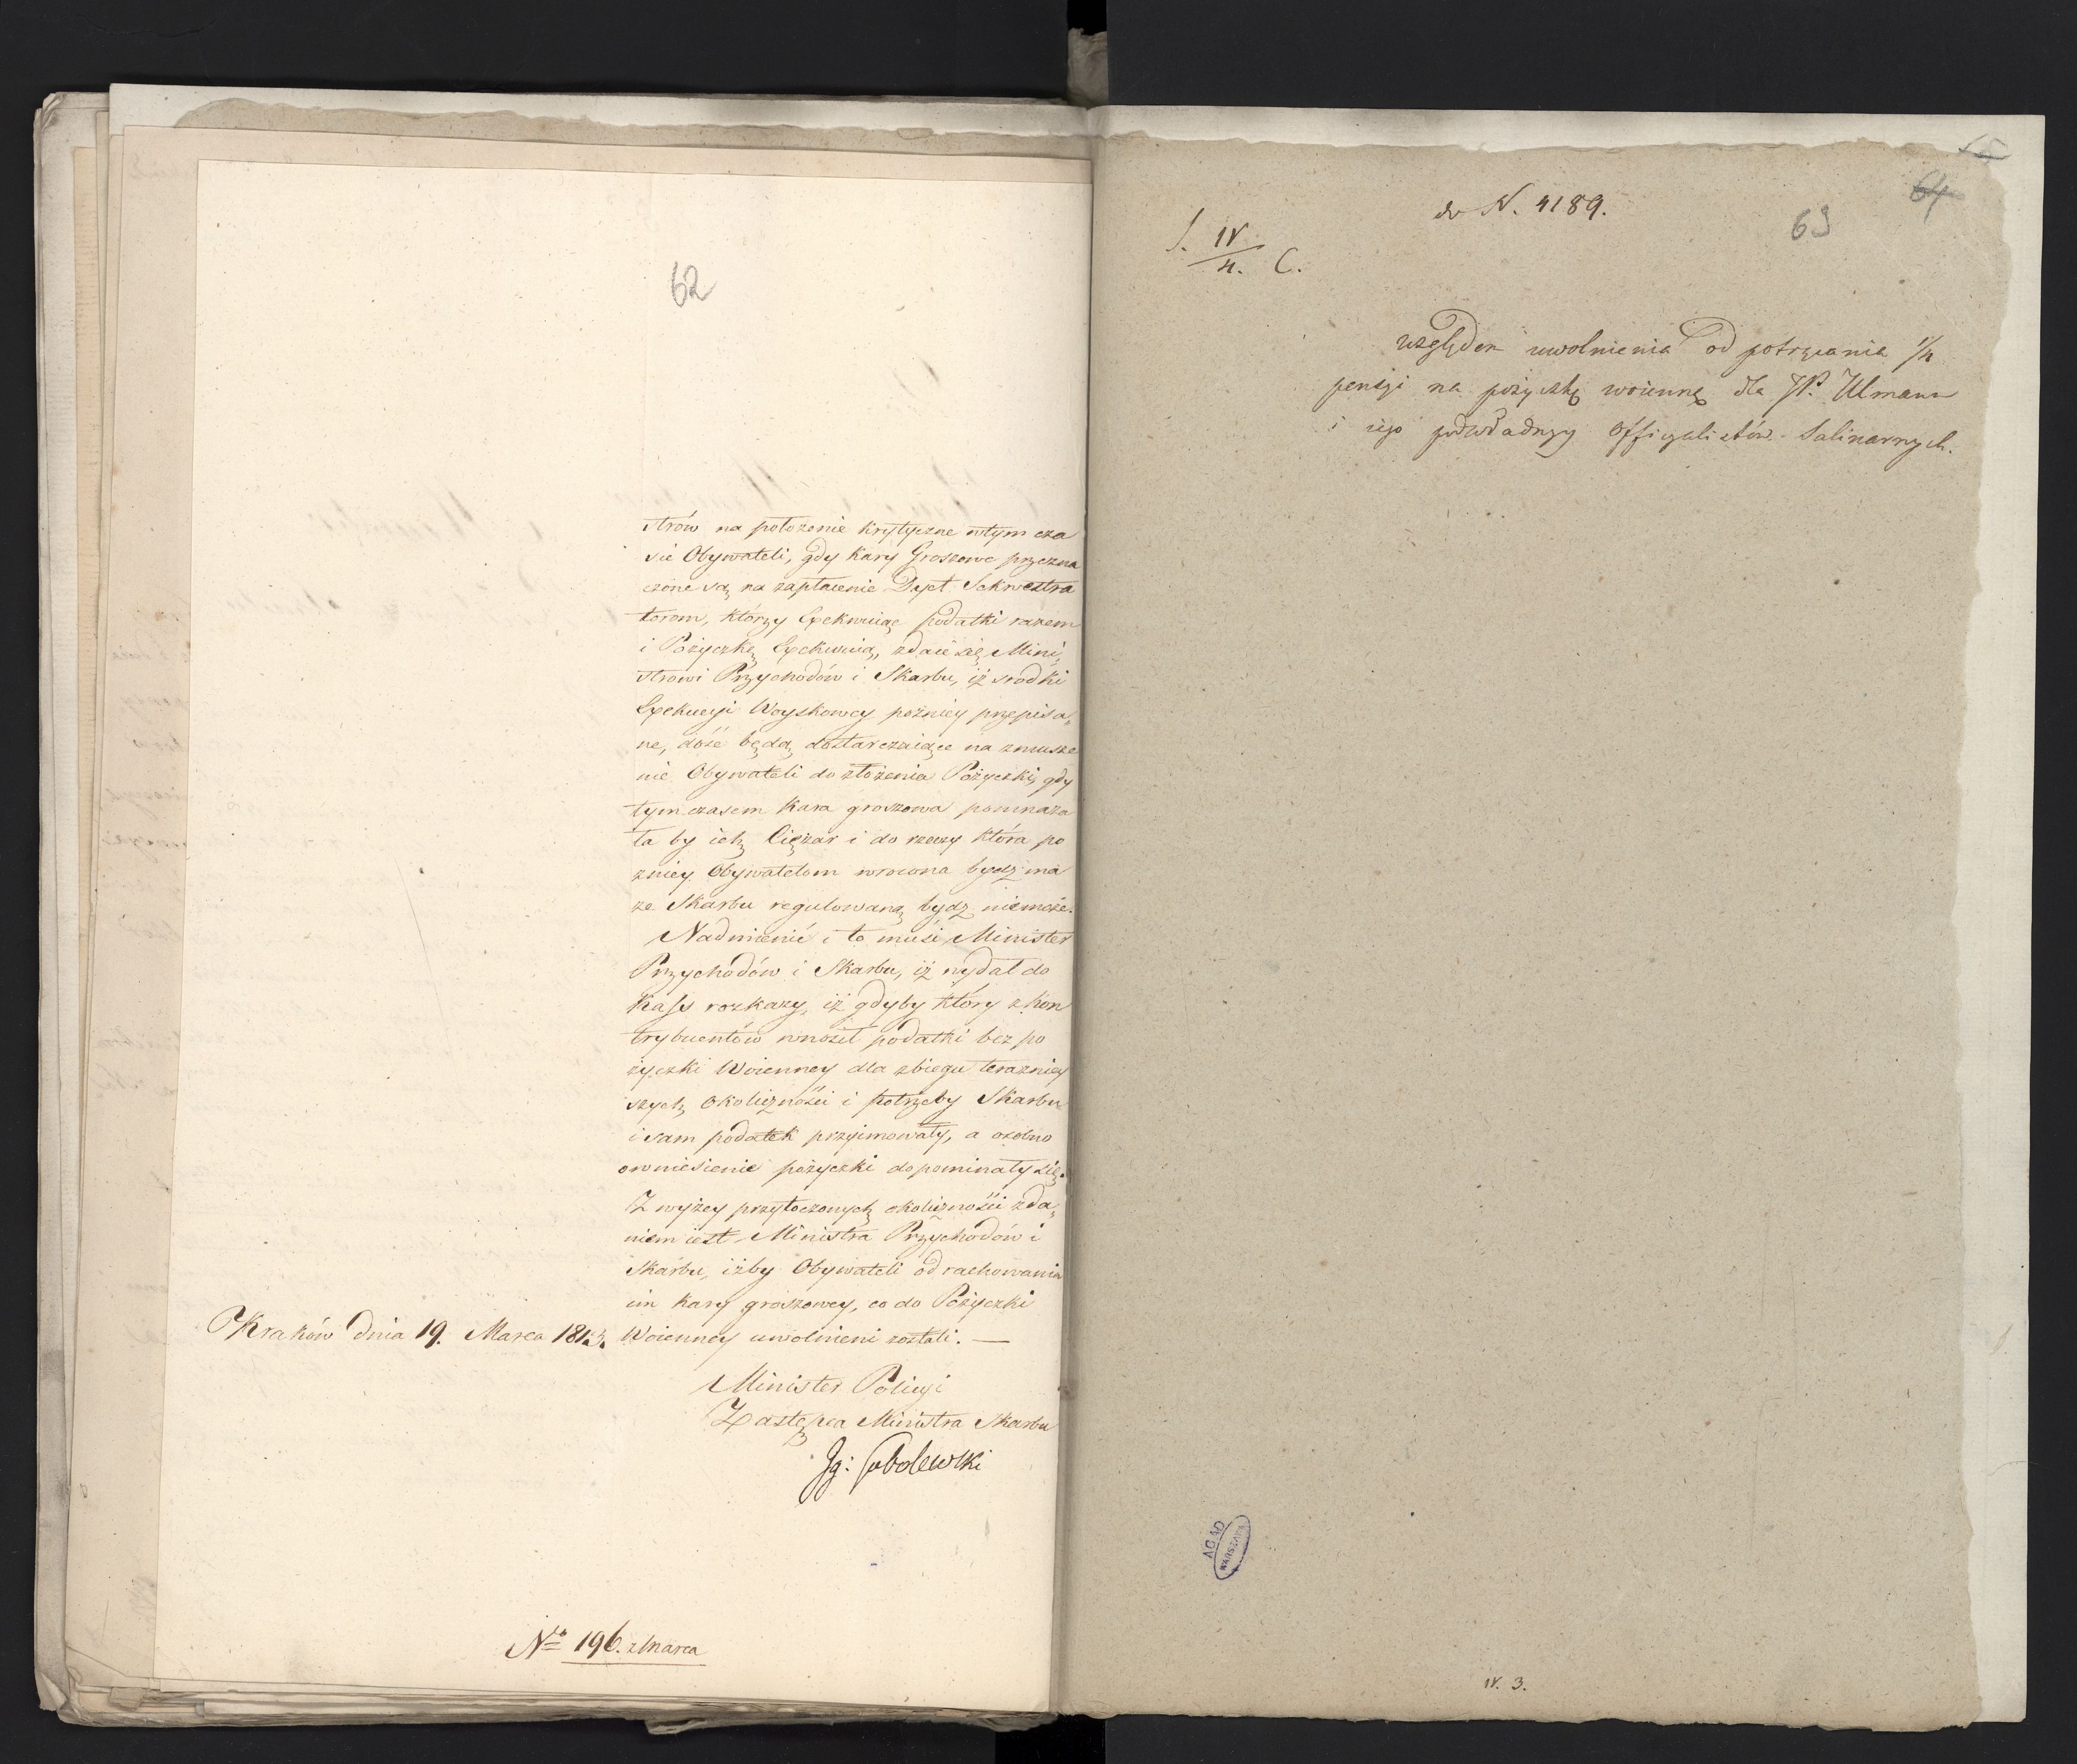 62
strów na położenie krytyczne w tym cza
sie Obywateli, gdy kary Groszowe przezna
czone są na zapłacenie Dyet Sekwestra
torom, którzy Exekwuiąc podatki razem
i Pożyczkę Exekwuią, zdaie się Mini„
strowi Przychodów i Skarbu, iż srodki
Exekucyi Woyskowey pozniey przepisa„
ne, dość będą dostarczaiące na zmusze
nie Obywateli do złożenia Pożyczki, gdy
tymczasem kara groszowa pomnaża
ła by ich Ciężar i do rzeczy która po
zniey Obywatelom wrocona bydz ma
ze Skarbu regulowaną bydz niemoże.
Nadmienić i to musi Minister
Przychodów i Skarbu, iż wydał do
Kass rozkazy, iż gdyby który z kon
trybuentów wnosił podatki bez po
życzki Woienney dla zbiegu teraźniey
szych okoliczności i potrzeby Skarbu
i sam podatek przyimowały, a osobno
o wniesienie pożyczki dopominały się.
Z wyżey przytoczonych okoliczności zda„
niem iest Ministra Przychodów i
Skarbu, iżby Obywateli od rachowania
im kary groszowey, co do Pożyczki
Woienney uwolnieni zostali. —
Kraków dnia 19. Marca 1813.
Minister Policyi
Zastępca Ministra Skarbu
Ig: Sobolewski
No 196. z Marca
64
63
do N. 4189.
IV
4. C.
względem uwolnienia od potrącania 1/4
pensyi na pożyczkę woienną dla JP. Ulmann
i iego podwładnych Officyalistów Salinarnych.
AGAD
WARSZAWA
IV. 3.